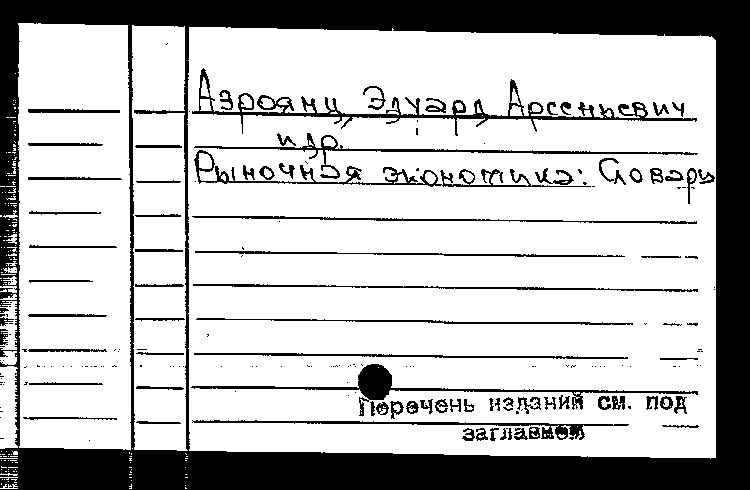 Аэроянц, Эдуард Арсеньевич
и др.
Рыночная экономика: Словарь
Перечень изданий см. под
заглавием